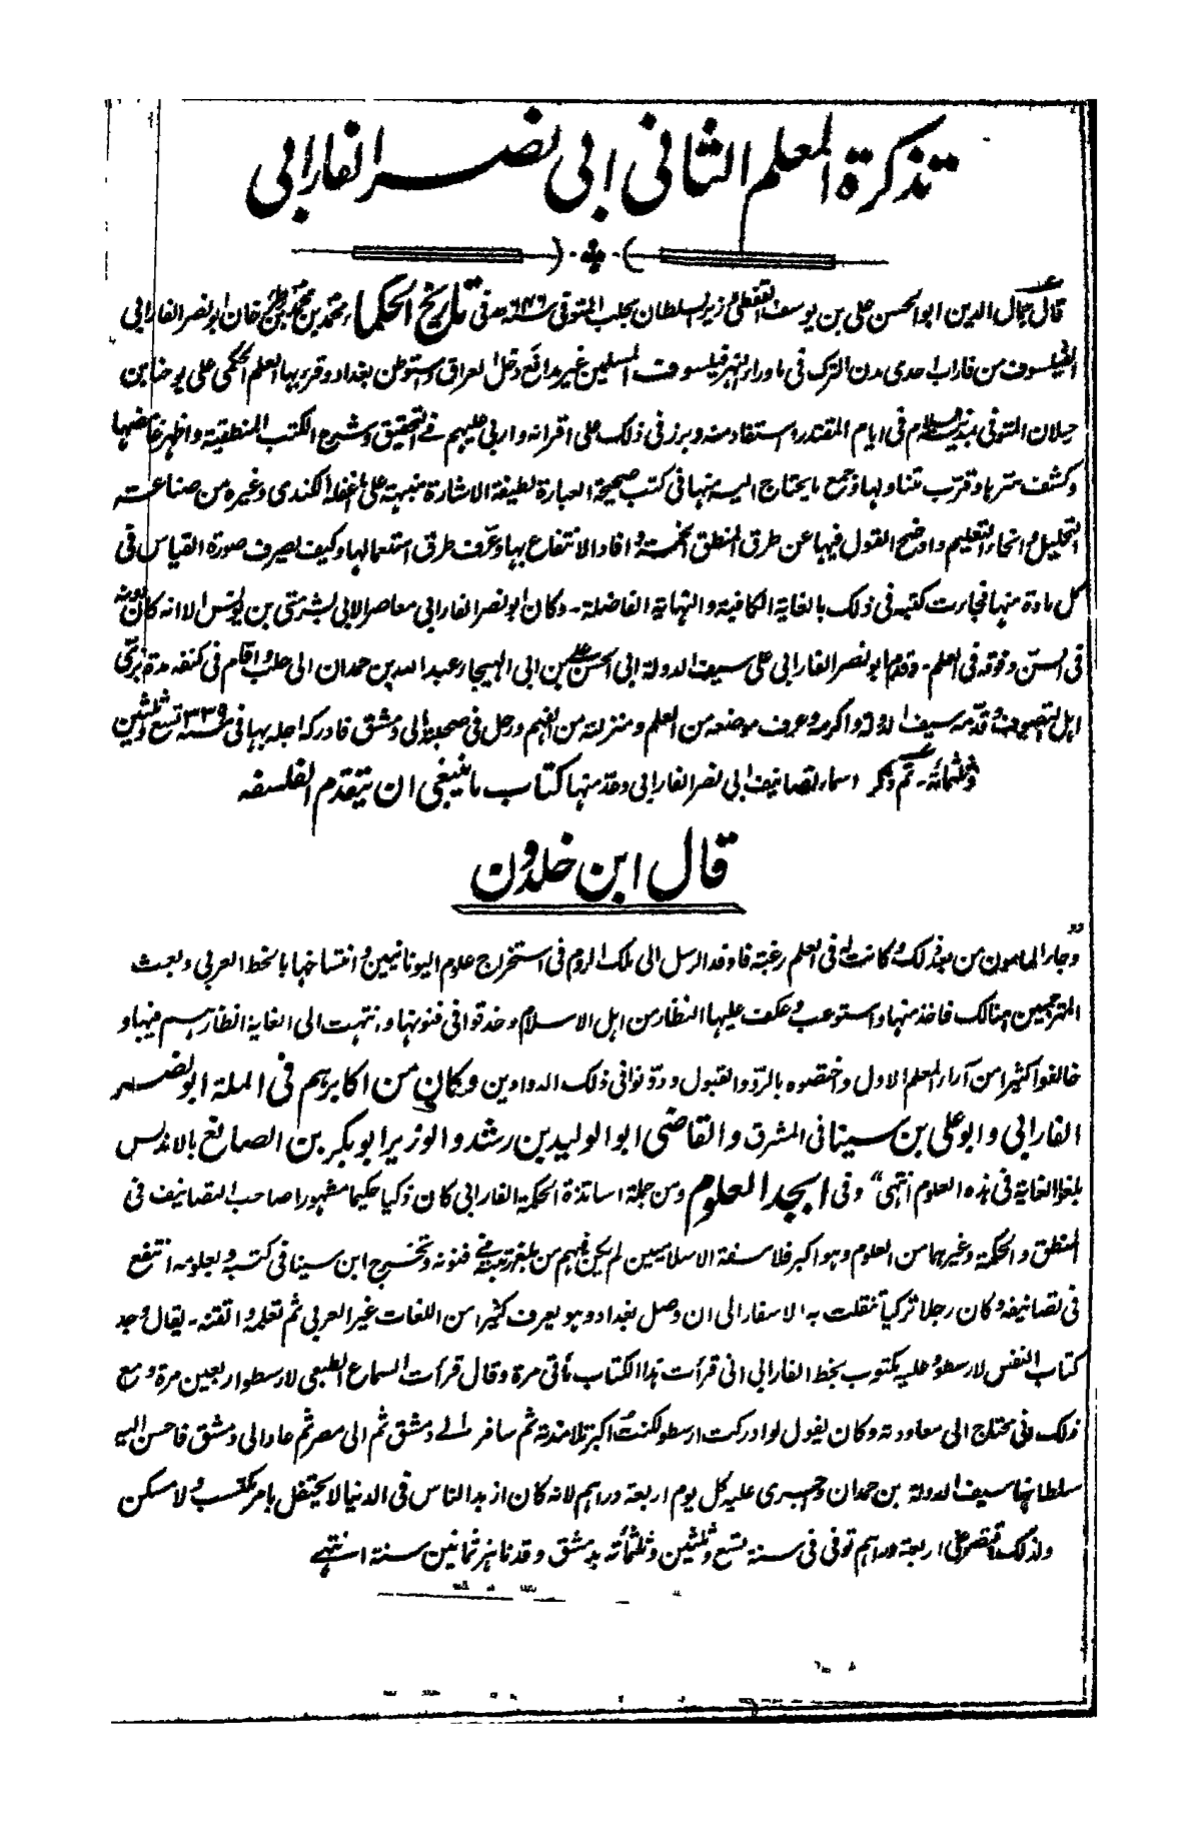 تذكرة المعلم الثاني ابي نصر الفارابي
قال جمال الدين ابو الحسن علي بن يوسف القفطي وزير السلطان بحلب المتوفى سنة ٦٤٦ھ في تاريخ الحكماء محمد بن محمد بن طرخان ابو نصر الفارابي
الفيلسوف من فاراب احدى مدن الترك في ما وراء النهر فيلسوف المسلمين غير مدافع دخل العراق واستوطن بغداد وقرء بها العلم الحكمي على يوحنا بن
حيلان المتوفى بمدينة السلام في ايام المقتدر واستفاد منه وبرز في ذلك على اقرانه واربى عليهم في التحقيق وشرح الكتب المنطقية واظهر غامضها
وكشف سرها وقرب تناولها وجمع ما يحتاج اليه منها في كتب صحيحة العبارة لطيفة الاشارة منبهة على ما اغفله الكندي وغيره من صناعة
التحليل وانحاء التعليم واوضح القول فيها عن طرق المنطق الخمسة وافاد الانتفاع بها وعرف طرق استعمالها وكيف يصرف صورة القياس في
كل مادة منها فجاءت كتبه في ذلك بالغاية الكافية والنهاية الفاضلة - وكان ابو نصر الفارابي معاصرا لابي بشر متى بن يونس الا انه كان دونه
في السن وفوقه في العلم - وقدم ابو نصر الفارابي على سيف الدولة ابي الحسن علي بن ابي الهيجاء عبد الله بن حمدان الى حلب واقام في كنفه مدة بزي
اهل التصوف وقدمه سيف الدولة واكرمه وعرف موضعه من العلم ومنزلته من الفهم ورحل في صحبته الى دمشق فادركه اجله بها في سنة ٣٣٩ تسع وثلثين
وثلثمائة - ثم ذكر اسماء تصانيف ابي نصر الفارابي وعد منها كتاب ما ينبغي ان يتقدم الفلسفه
قال ابن خلدون
وجاء المامون من بعد ذلك وكانت له في العلم رغبة فاوفد الرسل الى ملك الروم في استخراج علوم اليونانيين وانتساخها بالخط العربي وبعث
المترجمين هنالك فاخذ منها واستوعب وعكف عليها النظار من اهل الاسلام وحذقوا في فنونها وانتهت الى الغاية انظارهم فيها و
خالفوا كثيرا من آراء المعلم الاول واختصوه بالرد والقبول ودونوا في ذلك الدواوين وكان من اكابرهم في الملة ابو نصر
الفارابي وابو علي بن سينا في المشرق والقاضي ابو الوليد بن رشد والوزير ابو بكر بن الصائغ بالاندلس
بلغوا الغاية في هذه العلوم انتهى" وفي ابجد العلوم ومن جملة اساتذة الحكمة الفارابي كان ذكيا حكيما مشهورا صاحب التصانيف في
المنطق والحكمة وغيرهما من العلوم وهو اكبر فلاسفة الاسلاميين لم يكن فيهم من بلغ رتبته في فنونه وتخرج ابن سينا في كتبه وبعلومه انتفع
في تصانيفه وكان رجلا تركيا تنقلت به الاسفار الى ان وصل بغداد وهو يعرف كثيرا من اللغات غير العربي ثم تعلمه واتقنه - يقال وجد
كتاب النفس لارسطو وعليه مكتوب بخط الفارابي اني قرأت هذا الكتاب مأتي مرة وقال قرأت السماع الطبعي لارسطو اربعين مرة ومع
ذلك اني محتاج الى معاودته وكان يقول لو ادركت ارسطو لكنت اكبر تلامذته ثم سافر الے دمشق ثم الى مصر ثم عاد الى دمشق فاحسن اليه
سلطانها سيف الدولة بن حمدان واجرى عليه كل يوم اربعة دراهم لانه كان ازهد الناس في الدنيا لا يحتفل بامر مكتسب ولا مسكن
ولذلك اقتصر على اربعة دراهم توفي في سنة تسع وثلثين وثلثمأته بدمشق وقد ناهز ثمانين سنة انتهے